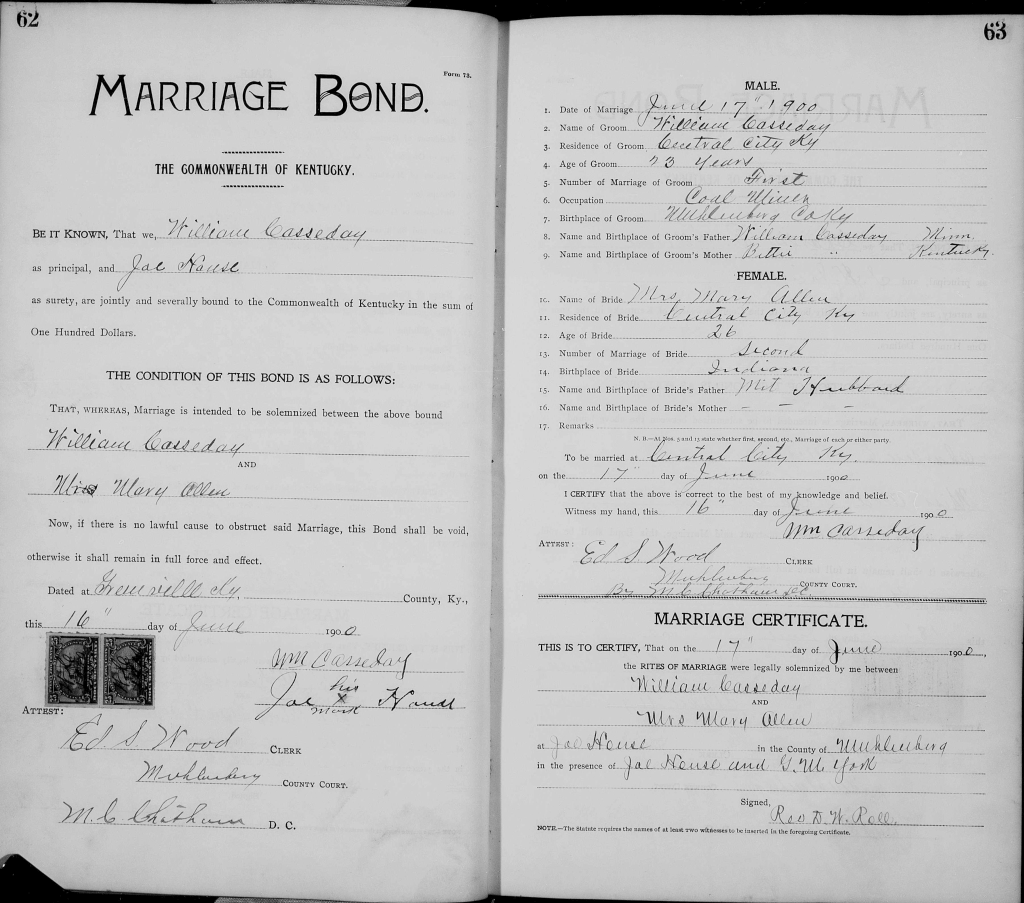 62
Form 73.
MARRIAGE BOND.
THE COMMONWEALTH OF KENTUCKY.
BE IT KNOWN, That we, William Casseday
as principal, and Joe House
as surety, are jointly and severally bound to the Commonwealth of Kentucky in the sum of
One Hundred Dollars.
THE CONDITION OF THIS BOND IS AS FOLLOWS:
THAT, WHEREAS, Marriage is intended to be solemnized between the above bound
William Casseday
AND
Mrs Mary Allen
Now, if there is no lawful cause to obstruct said Marriage, this Bond shall be void,
otherwise it shall remain in full force and effect.
Dated at Greenville Ky, County, Ky.,
this 16" day of June 1900
Wm Casseday
Joe his x mark House
ATTEST:
Ed S. Wood CLERK
Muhlenberg COUNTY COURT.
M. C. Chatham D. C.
63
MALE.
1. Date of Marriage June 17" 1900
2. Name of Groom William Casseday
3. Residence of Groom Central City Ky
4. Age of Groom 23 Years
5. Number of Marriage of Groom First
6. Occupation Coal Miner
7. Birthplace of Groom Muhlenberg Co Ky
8. Name and Birthplace of Groom's Father William Casseday Minn,
9. Name and Birthplace of Groom's Mother Bettie " Kentucky.
FEMALE.
10. Name of Bride Mrs, Mary Allen
11. Residence of Bride Central City Ky
12. Age of Bride 26
13. Number of Marriage of Bride Second
14. Birthplace of Bride Indiana
15. Name and Birthplace of Bride's Father Mit Hubbard
16. Name and Birthplace of Bride's Mother - - -
17. Remarks
N. B.—At Nos. 5 and 13 state whether first, second, etc., Marriage of each or either party.
To be married at Central City Ky.
on the 17" day of June 1900
I CERTIFY that the above is correct to the best of my knowledge and belief.
Witness my hand, this 16" day of June 1900
Wm Casseday
ATTEST:
Ed S. Wood CLERK
Muhlenberg COUNTY COURT.
By M. C. Chatham DC
MARRIAGE CERTIFICATE.
THIS IS TO CERTIFY, That on the 17" day of June 1900,
the RITES OF MARRIAGE were legally solemnized by me between
William Casseday
AND
Mrs Mary Allen
at Joe House in the County of Muhlenberg
in the presence of Joe House and G. M. York
Signed,
Rev D. W. Roll.
NOTE.—The Statute requires the names of at least two witnesses to be inserted in the foregoing Certificate.